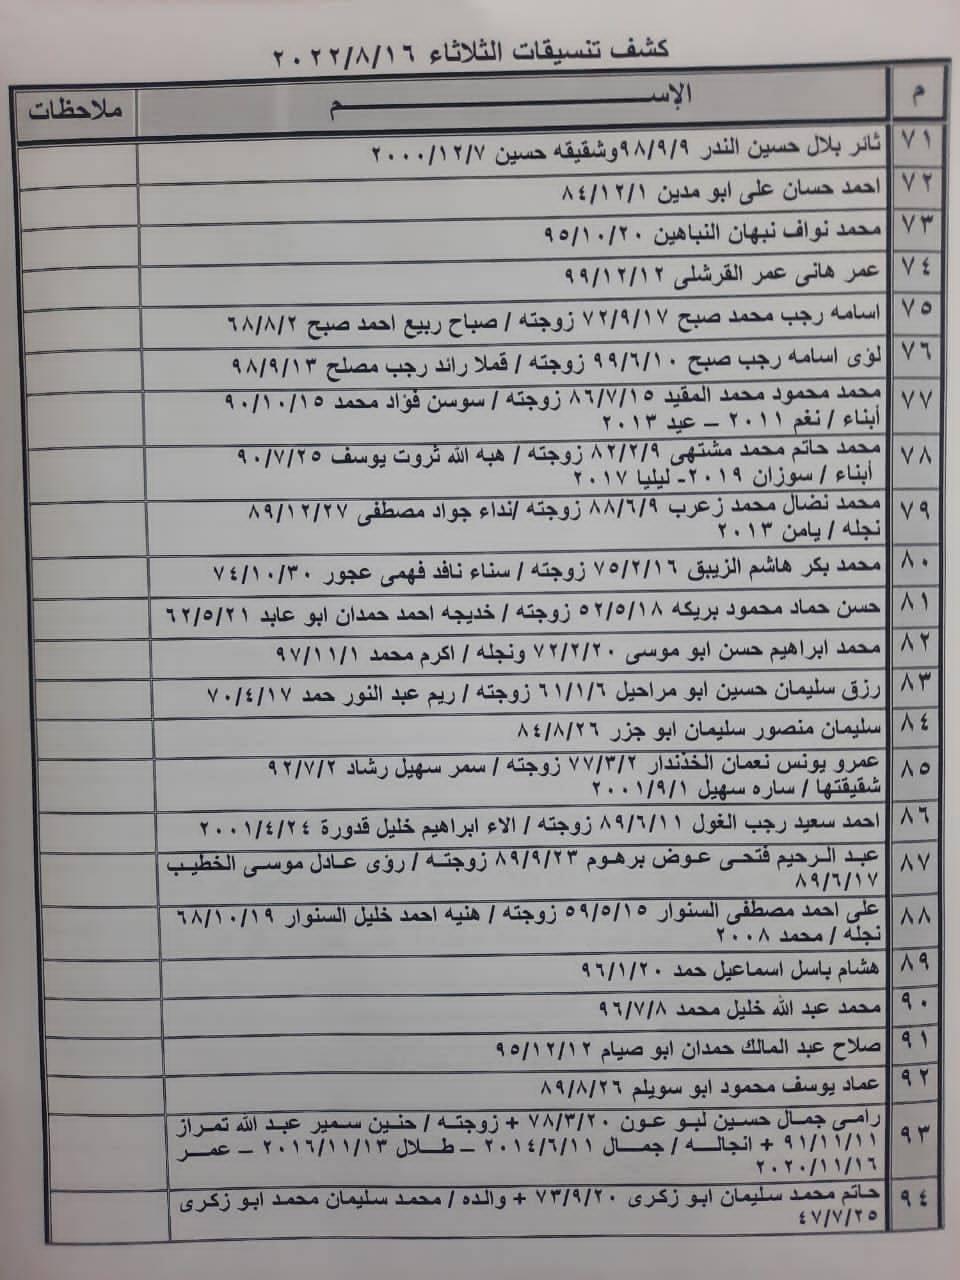 كشف تنسيقات الثلاثاء ٢٠٢٢/٨/١٦
م الإســـــــــم ملاحظات
٧١ ثائر بلال حسين الندر ٩٨/٩/٩وشقيقه حسين ٢٠٠٠/١٢/٧
٧٢ احمد حسان على ابو مدين ٨٤/١٢/١
٧٣ محمد نواف نبهان النباهين ٩٥/١٠/٢٠
٧٤ عمر هانى عمر القرشلى ٩٩/١٢/١٢
٧٥ اسامه رجب محمد صبح ٧٢/٩/١٧ زوجته / صباح ربيع احمد صبح ٦٨/٨/٢
٧٦ لؤى اسامه رجب صبح ٩٩/٦/١٠ زوجته / قملا رائد رجب مصلح ٩٨/٩/١٣
٧٧ محمد محمود محمد المقيد ٨٦/٧/١٥ زوجته / سوسن فؤاد محمد ٩٠/١٠/١٥
أبناء / نغم ٢٠١١ – عيد ٢٠١٣
٧٨ محمد حاتم محمد مشتهى ٨٢/٢/٩ زوجته / هبه الله ثروت يوسف ٩٠/٧/٢٥
أبناء / سوزان ٢٠١٩- ليليا ٢٠١٧
٧٩ محمد نضال محمد زعرب ٨٨/٦/٩ زوجته /نداء جواد مصطفى ٨٩/١٢/٢٧
نجله / يامن ٢٠١٣
٨٠ محمد بكر هاشم الزيبق ٧٥/٢/١٦ زوجته / سناء نافد فهمى عجور ٧٤/١٠/٣٠
٨١ حسن حماد محمود بريكه ٥٢/٥/١٨ زوجته / خديجه احمد حمدان ابو عابد ٦٢/٥/٢١
٨٢ محمد ابراهيم حسن ابو موسى ٧٢/٢/٢٠ ونجله / اكرم محمد ٩٧/١١/١
٨٣ رزق سليمان حسين ابو مراحيل ٦١/١/٦ زوجته / ريم عبد النور حمد ٧٠/٤/١٧
٨٤ سليمان منصور سليمان ابو جزر ٨٤/٨/٢٦
٨٥ عمرو يونس نعمان الخذندار ٧٧/٣/٢ زوجته / سمر سهيل رشاد ٩٢/٧/٢
شقيقتها / ساره سهيل ٢٠٠١/٩/١
٨٦ احمد سعيد رجب الغول ٨٩/٦/١١ زوجته / الاء ابراهيم خليل قدورة ٢٠٠١/٤/٢٤
٨٧ عبد الرحيم فتحى عوض برهوم ٨٩/٩/٢٣ زوجته / رؤى عادل موسى الخطيب
٨٩/٦/١٧
٨٨ على احمد مصطفى السنوار ٥٩/٥/١٥ زوجته / هنيه احمد خليل السنوار ٦٨/١٠/١٩
نجله / محمد ٢٠٠٨
٨٩ هشام باسل اسماعيل حمد ٩٦/١/٢٠
٩٠ محمد عبد الله خليل محمد ٩٦/٧/٨
٩١ صلاح عبد المالك حمدان ابو صيام ٩٥/١٢/١٢
٩٢ عماد يوسف محمود ابو سويلم ٨٩/٨/٢٦
٩٣ رامى جمال حسين لبو عون ٧٨/٣/٢٠ + زوجته / حنين سمير عبد الله تمراز
٩١/١١/١١ + انجاله / جمال ٢٠١٤/٦/١١ – طلال ٢٠١٦/١١/١٣ – عمر
٢٠٢٠/١١/١٦
٩٤ حاتم محمد سليمان ابو زكرى ٧٣/٩/٢٠ + والده / محمد سليمان محمد ابو زكرى
٤٧/٧/٢٥